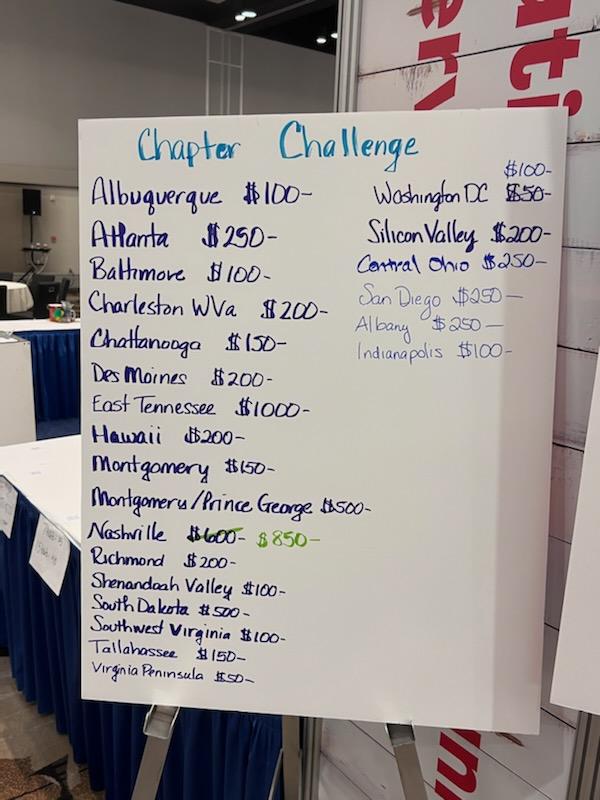 Chapter Challenge
Albuquerque $100-
Atlanta $250-
Baltimore $100-
Charleston WVa $200-
Chattanooga $150-
Des Moines $200-
East Tennessee $1000-
Hawaii $200-
Montgomery $150-
Montgomery/Prince George $500-
Nashville $600- $850-
Richmond $200-
Shenandoah Valley $100-
South Dakota $500-
Southwest Virginia $100-
Tallahassee $150-
Virginia Peninsula $50-
$100-
Washington DC $50-
Silicon Valley $200-
Central Ohio $250-
San Diego $250-
Albany $250-
Indianapolis $100-